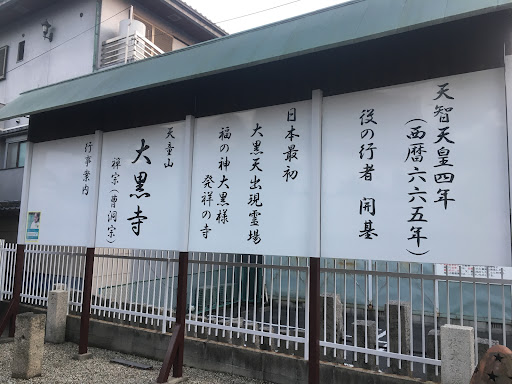 天智天皇四年
(西暦六六五年)
役の行者 開基
日本最初
大黒天出現霊場
福の神大黒様
発祥の寺
天童山
大黒寺
禅宗(曹洞宗)
行事案内